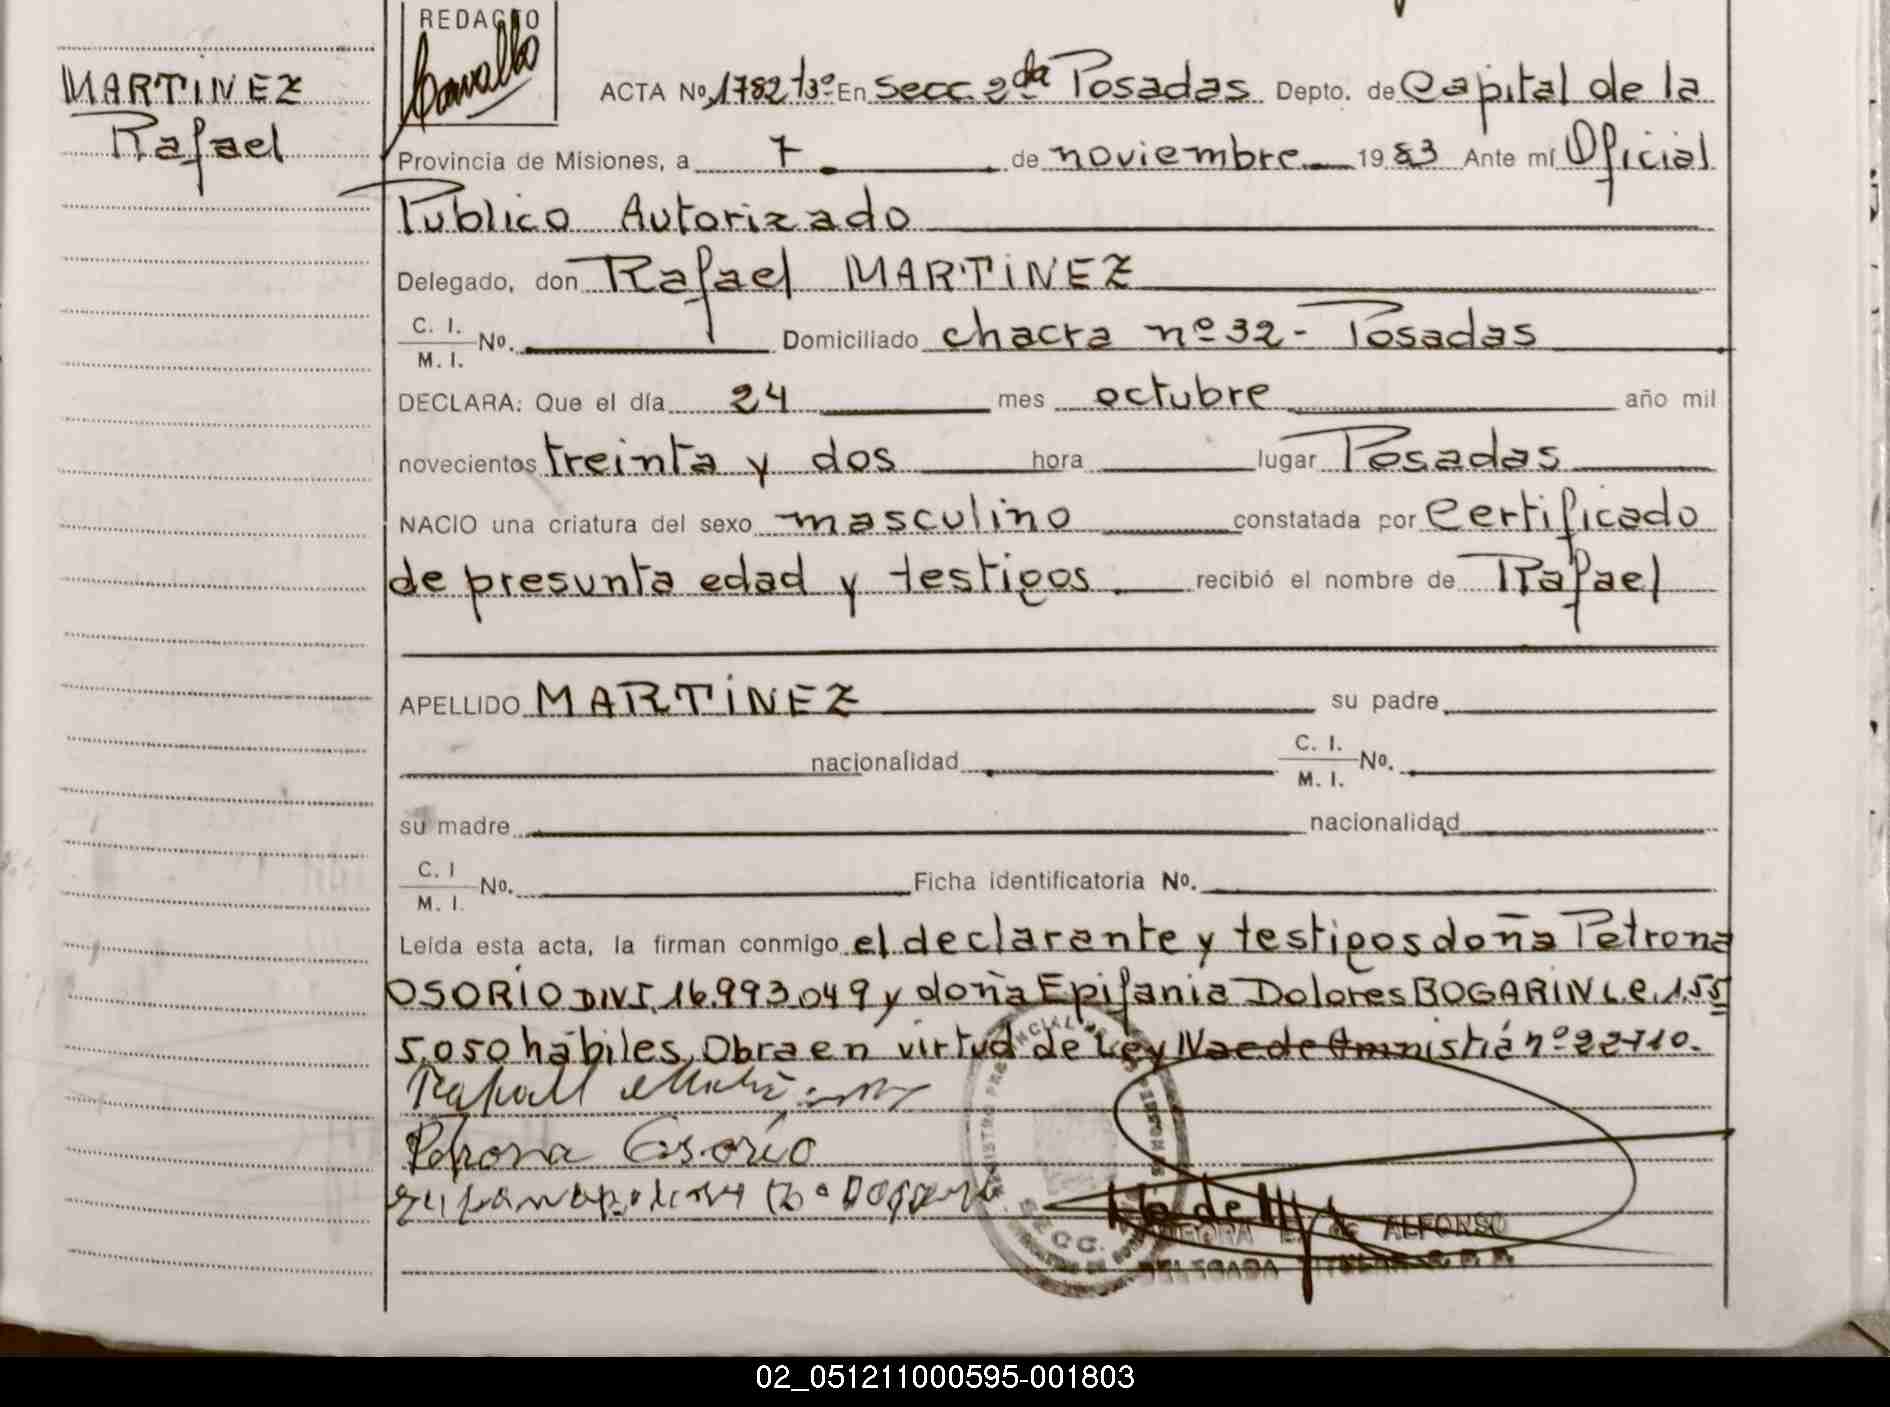 REDACTO
MARTINEZ
Rafael
ACTA No. 1782 t3º En Secc. 2da Posadas Depto. de Capital de la
Provincia de Misiones, a 7 de noviembre 1983 Ante mí Oficial
Publico Autorizado
Delegado, don Rafael MARTINEZ
C. I.
M. I. No. Domiciliado chacra nº 32 - Posadas
DECLARA: Que el día 24 mes octubre año mil
novecientos treinta y dos hora lugar Posadas
NACIO una criatura del sexo masculino constatada por Certificado
de presunta edad y testigos recibió el nombre de Rafael
APELLIDO MARTINEZ su padre
nacionalidad C. I.
M. I. No.
su madre nacionalidad
C. I
M. I. No. Ficha identificatoria No.
Leída esta acta, la firman conmigo el declarante y testigos doña Petrona
OSORIO D.N.I. 16.993.049 y doña Epifania Dolores BOGARIN L.C. 1.55
5.050 hábiles, Obra en virtud de Ley Nac de Amnistia nº 22710.
Petrona Osorio
SECC.
de ALFONSO
DELEGADA TITULAR
02_051211000595-001803